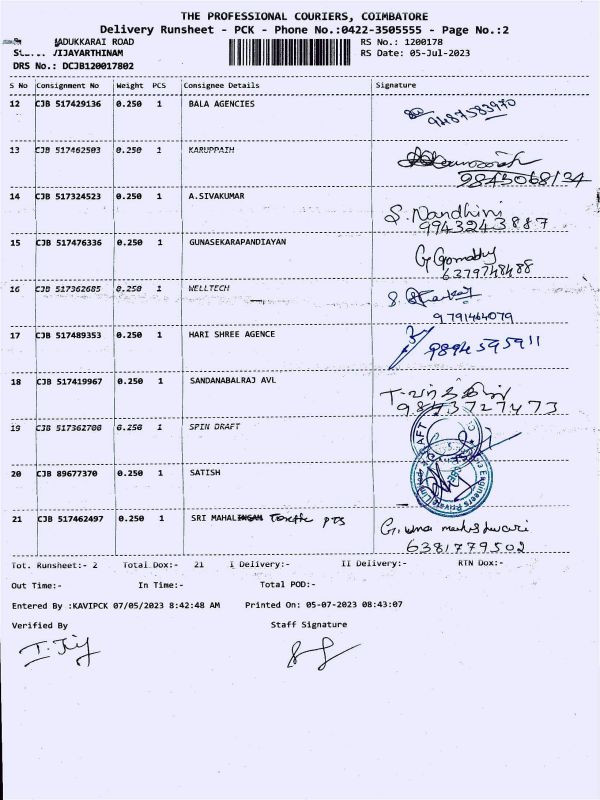 THE PROFESSIONAL COURIERS, COIMBATORE
Delivery Runsheet - PCK - Phone No.:0422-3505555 - Page No.:2
ADUKKARAI ROAD RS No.: 1200178
VIJAYARTHINAM RS Date: 05-Jul-2023
DRS No.: DCJB120017802
S No Consignment No Weight PCS Consignee Details Signature
12 CJB 517429136 0.250 1 BALA AGENCIES
9487583970
13 CJB 517462503 0.250 1 KARUPPAIH
9843068134
14 CJB 517324523 0.250 1 A.SIVAKUMAR S. Nandhini
9943243887
15 CJB 517476336 0.250 1 GUNASEKARAPANDIYAN G Gomathy
6379748488
16 CJB 517362685 0.250 1 WELLTECH
9791464079
17 CJB 517489353 0.250 1 HARI SHREE AGENCE 9894595911
18 CJB 517419967 0.250 1 SANDANABALRAJ AVL
9843727473
19 CJB 517362700 0.250 1 SPIN DRAFT
20 CJB 89677370 0.250 1 SATISH
21 CJB 517462497 0.250 1 SRI MAHALINGAM G. uma maheshwari
6381779502
Tot. Runsheet:- 2 Total Dox:- 21 I Delivery:- II Delivery:- RTN Dox:-
Out Time:- In Time:- Total POD:-
Entered By :KAVIPCK 07/05/2023 8:42:48 AM Printed On: 05-07-2023 08:43:07
Verified By Staff Signature